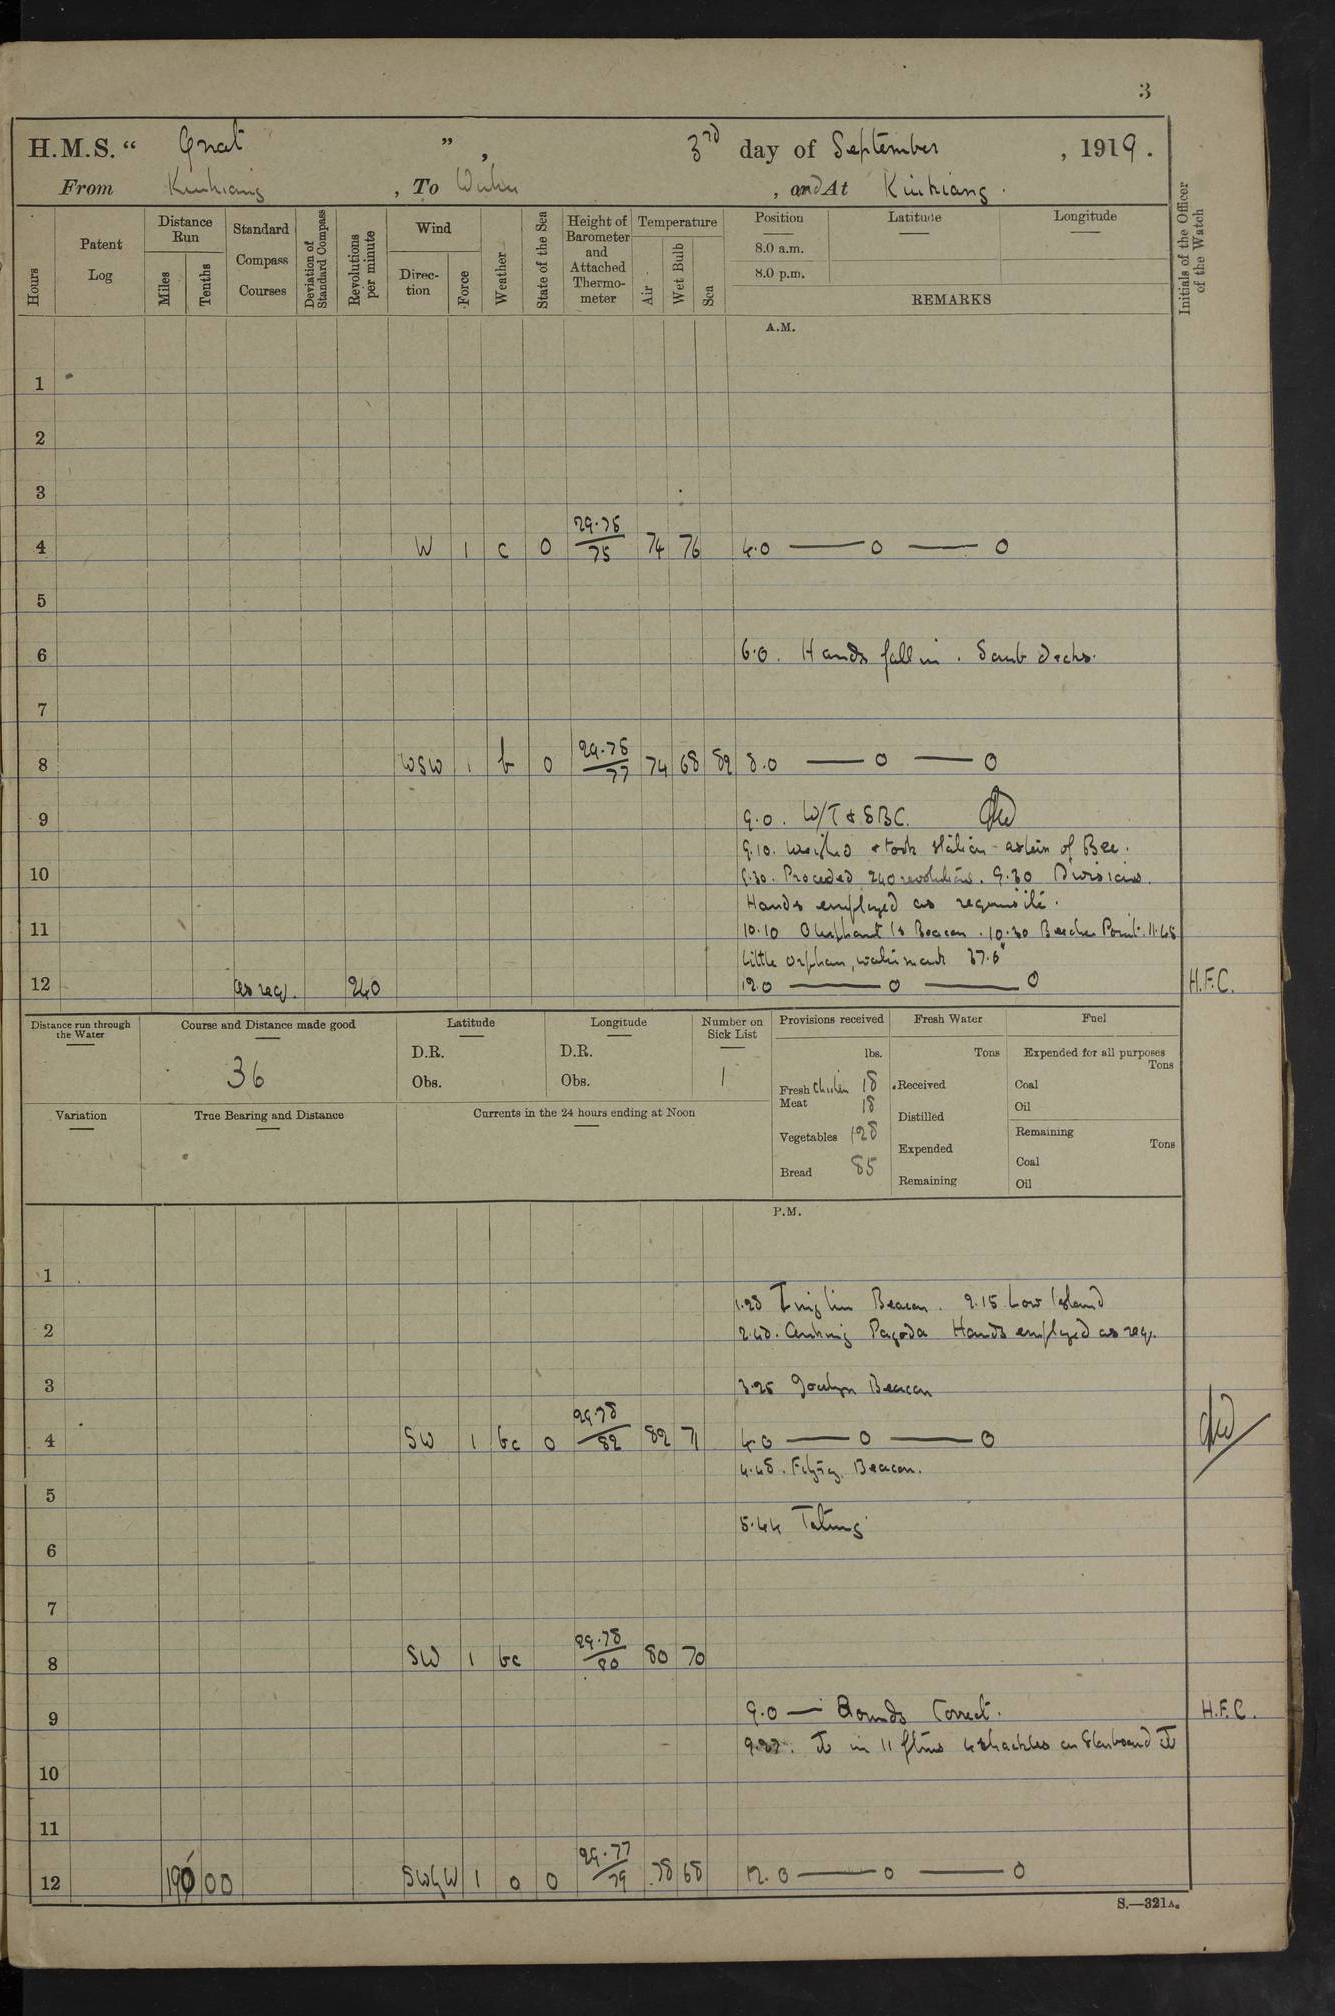 3
H.M.S. “ Gnat ” , 3rd day of September , 1919.
From Kiukiang , To Wuhu , and At Kiukiang.
Hours
Patent Log
Distance Run
Miles
Tenths
Standard Compass Courses
Deviation of Standard Compass
Revolutions per minute
Wind
Direction
Force
Weather
State of the Sea
Height of Barometer and Attached Thermometer
Temperature
Air
Wet Bulb
Sea
Position
8.0 a.m.
8.0 p.m.
Latitude
Longitude
REMARKS
Initials of the Officer of the Watch
A.M.
1
2
3
4 W 1 c 0 29.78 75 74 76 4.0 — 0 — 0
5
6 6.0. Hands fall in. Scrub decks.
7
8 WSW 1 b 0 29.78 77 74 68 82 8.0 — 0 — 0
9 9.0. W/T & SBC.
9.10. Weighed & took station astern of Bee.
10 9.30. Proceded 240 revolutions. 9.30 Divisions.
Hands employed as requisite.
11 10.10 Oliphant Is Beacon. 10.30 Beecher Point. 11.48
Little Orphan, water mark 37.6"
12 as req. 240 12.0 — 0 — 0 H.F.C.
Distance run through the Water
Course and Distance made good
36
Latitude
D.R.
Obs.
Longitude
D.R.
Obs.
Number on Sick List
1
Provisions received
lbs.
Fresh Chicken 18
Meat 18
Vegetables 128
Bread 85
Fresh Water
Tons
Received
Distilled
Expended
Remaining
Fuel
Expended for all purposes
Tons
Coal
Oil
Remaining
Tons
Coal
Oil
Variation
True Bearing and Distance
Currents in the 24 hours ending at Noon
P.M.
1
1.28 Beacon. 2.15 Low Island
2 2.40. Anking Pagoda Hands employed as req.
3 3.25 Jocelyn Beacon
4 SW 1 bc 0 29.78 82 82 71 4.0 — 0 — 0
4.48. Beacon.
5
5.44 Tatung
6
7
8 SW 1 bc 29.78 80 80 70
9 9.0 — Rounds Correct. H.F.C.
9.27. in 11 ftms 4 shackles on Starboard
10
11
12 190 00 SWbyW 1 o 0 29.77 79 78 68 12.0 — 0 — 0
S.—321A.